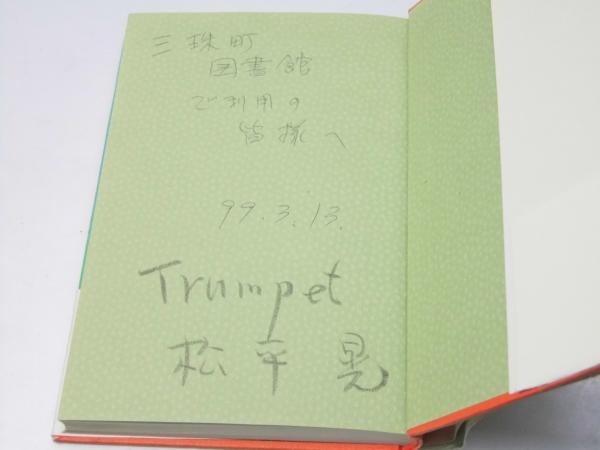 三珠町
図書館
ご利用の
皆様へ
99.3.13.
Trumpet
松平晃